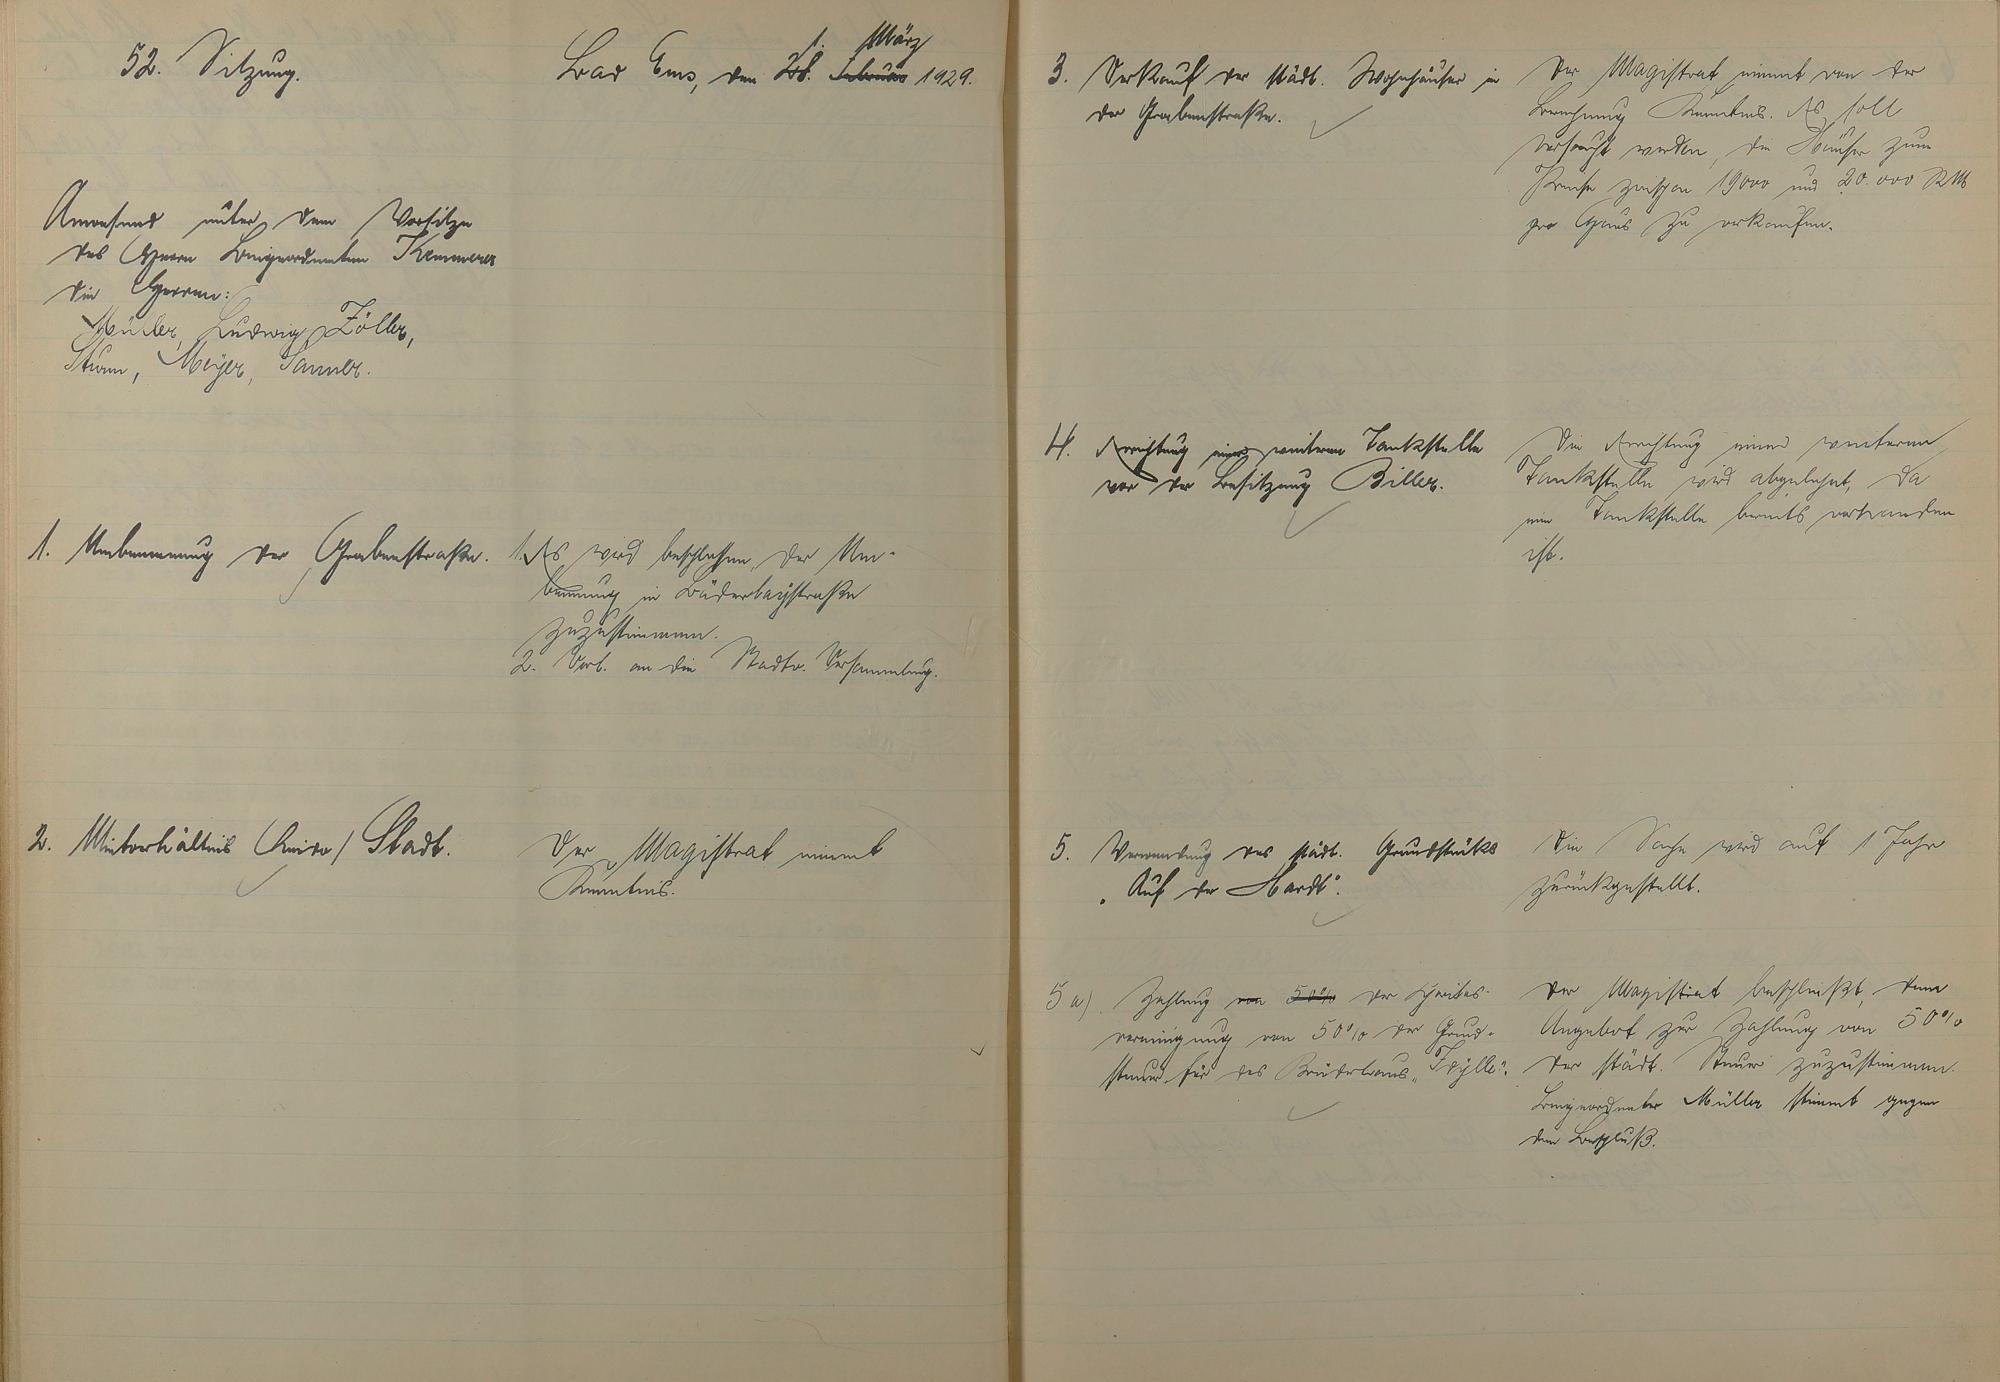 52. Sitzung.
Bad Ems, den 28. Februar 1. März 1929.
Anwesend unter dem Vorsitze
des Herrn Beigeordneten Kemmerer
die Herren:
Müller, Ludwig, Zöller,
Sturm, Meyer, Sanner.
1. Umbenennung der Grabenstraße.
1. Es wird beschlossen, der Um-
benennung in Bäderleystraße
zuzustimmen.
2. Vorl. an die Stadtv. Versammlung.
2. Mietverhältnis / Stadt.
Der Magistrat nimmt
Kenntnis.
3. Verkauf der städt. Wohnhäuser in
der Grabenstraße.
Der Magistrat nimmt von der
Berechnung Kenntnis. Es soll
versucht werden, die Häuser zum
Preise zwischen 19000 und 20.000 RM
pro Haus zu verkaufen.
4. Errichtung einer weiteren Tankstelle
vor der Besitzung Biller.
Die Errichtung einer weiteren
Tankstelle wird abgelehnt, da
eine Tankstelle bereits vorhanden
ist.
5. Verwendung des städt. Grundstücks
„Auf der Hardt".
Die Sache wird auf 1 Jahr
zurückgestellt.
5 a) Zahlung von 50% der
von 50% der Grund-
steuer für das Brüderhaus „Idylle".
Der Magistrat beschließt, dem
Angebot zur Zahlung von 50%
der städt. Steuer zuzustimmen.
Beigeordneter Müller stimmt gegen
den Beschluß.